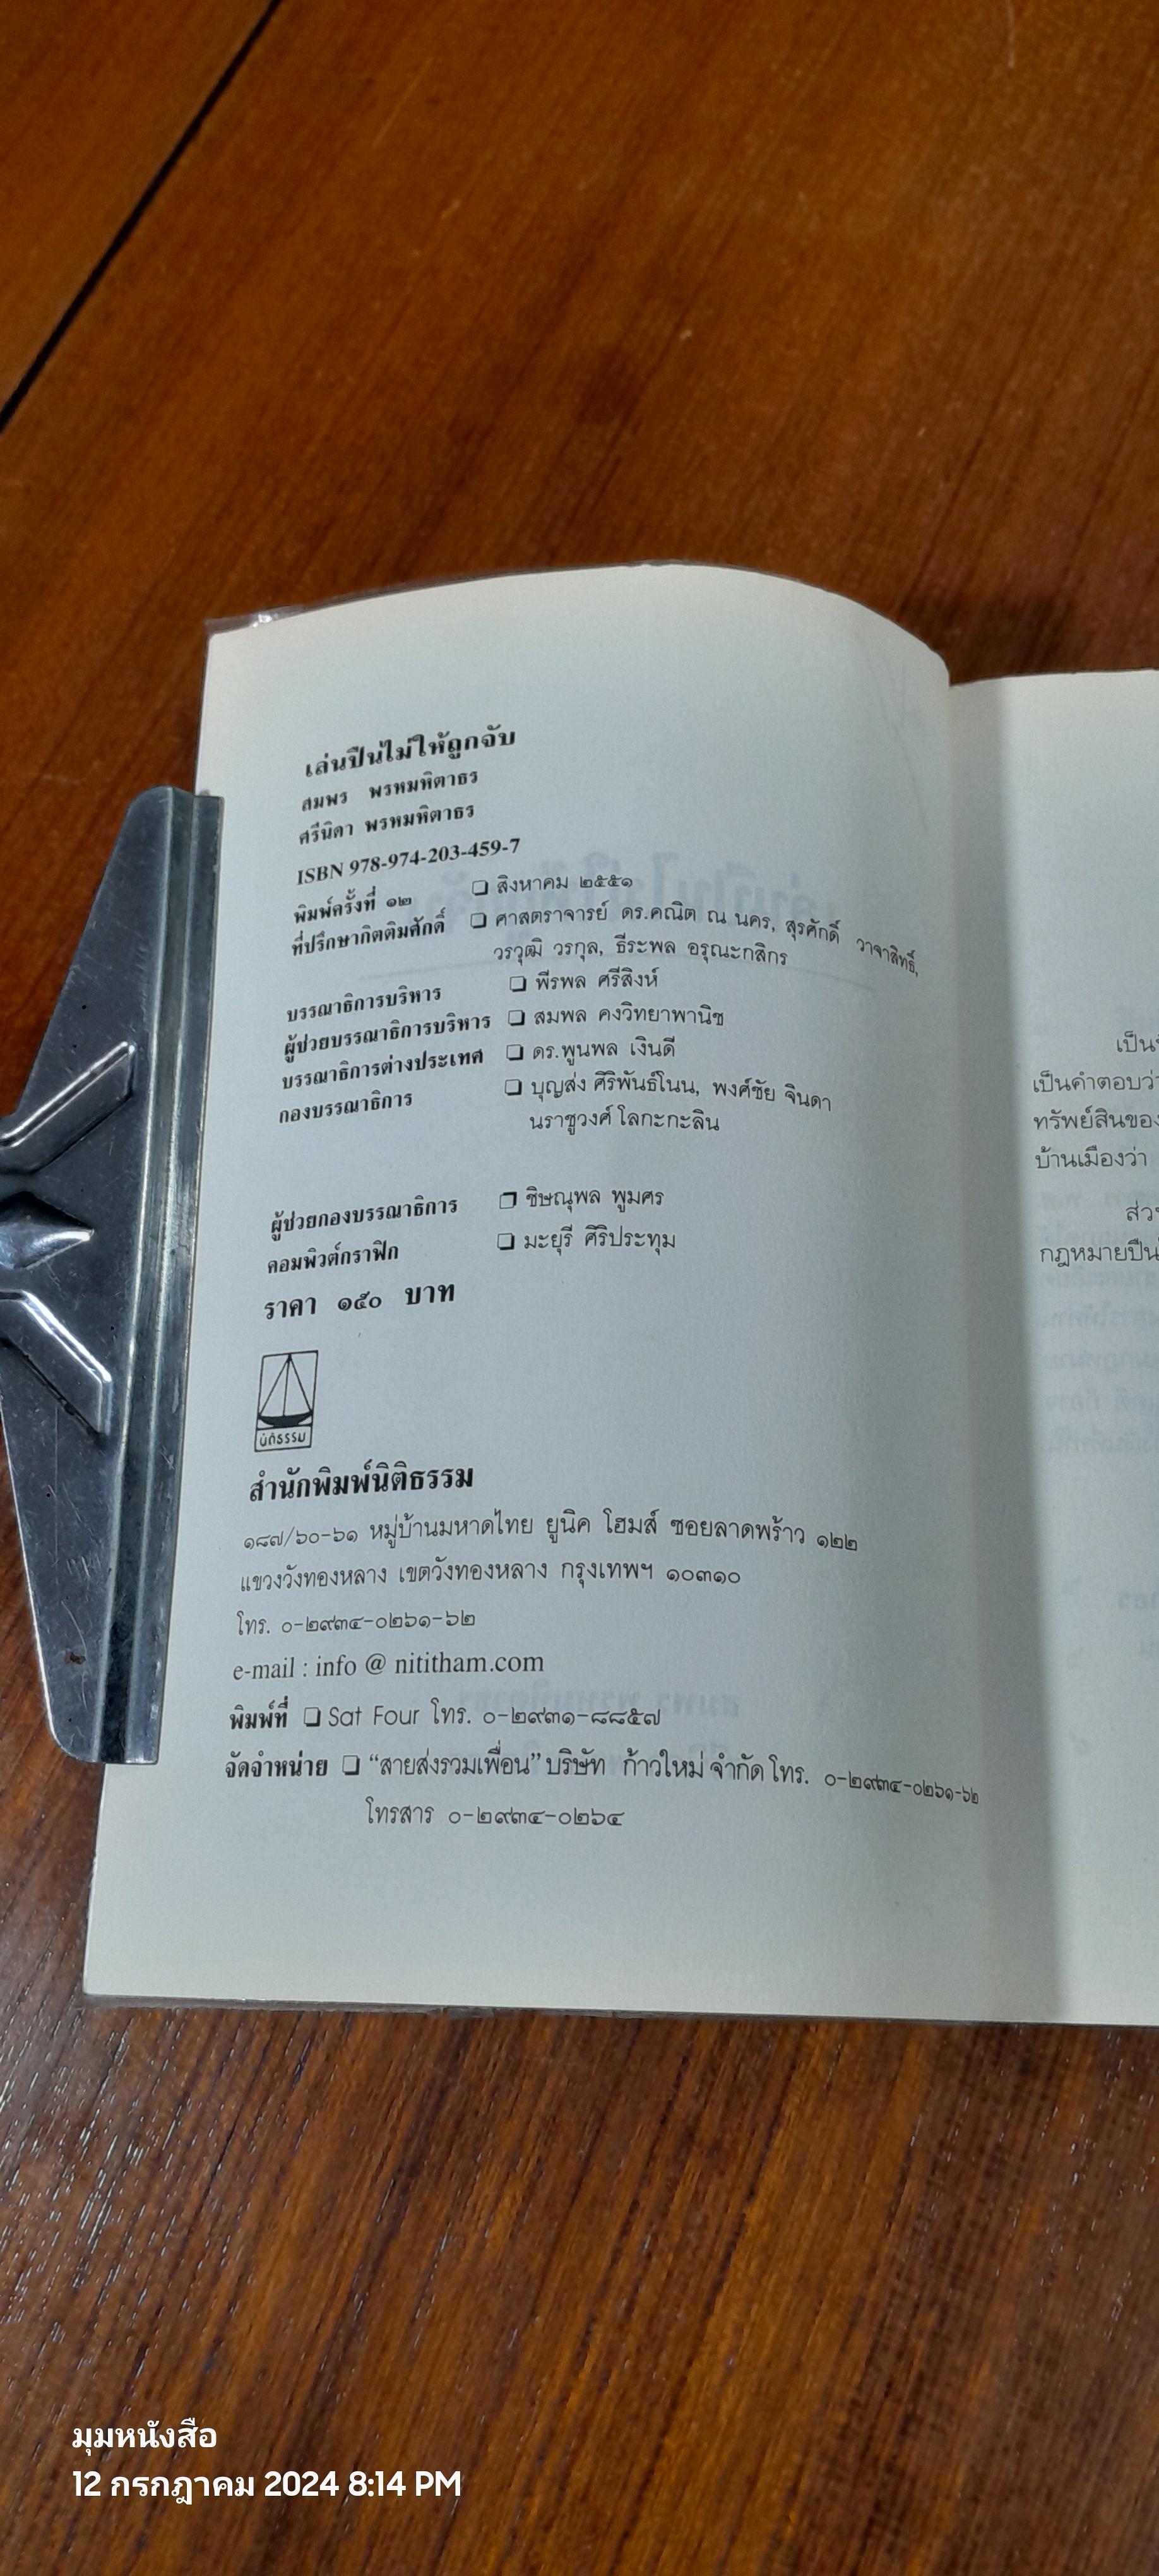 เล่นปืนไม่ให้ถูกจับ
สมพร พรหมหิตาธร
ศรีนิดา พรหมหิตาธร
ISBN 978-974-203-459-7
พิมพ์ครั้งที่ ๑๒ ❏ สิงหาคม ๒๕๕๑
ที่ปรึกษากิตติมศักดิ์ ❏ ศาสตราจารย์ ดร.คณิต ณ นคร, สุรศักดิ์ วาจาสิทธิ์,
วรวุฒิ วรกุล, ธีระพล อรุณะกสิกร
บรรณาธิการบริหาร ❏ พีรพล ศรีสิงห์
ผู้ป่วยบรรณาธิการบริหาร ❏ สมพล คงวิทยาพานิช
บรรณาธิการต่างประเทศ ❏ ดร.พูนพล เงินดี
กองบรรณาธิการ ❏ บุญส่ง ศิริพันธ์โนน, พงศ์ชัย จินดา
นราชูวงศ์ โลกะกะลิน
ผู้ช่วยกองบรรณาธิการ ❏ ชิษณุพล พูมศร
คอมพิวต์กราฟิก ❏ มะยุรี ศิริประทุม
ราคา ๑๕๐ บาท
นิติธรรม
สำนักพิมพ์นิติธรรม
๑๘๗/๖๐-๖๑ หมู่บ้านมหาดไทย ยูนิค โฮมส์ ซอยลาดพร้าว ๑๒๒
แขวงวังทองหลาง เขตวังทองหลาง กรุงเทพฯ ๑๐๓๑๐
โทร. ๐-๒๙๓๔-๐๒๖๑-๖๒
e-mail : info @ nititham.com
พิมพ์ที่ ❏ Sat Four โทร. ๐-๒๙๓๑-๘๘๕๗
จัดจำหน่าย ❏ “สายส่งรวมเพื่อน” บริษัท ก้าวใหม่ จำกัด โทร. ๐-๒๙๓๔-๐๒๖๑-๖๒
โทรสาร ๐-๒๙๓๔-๐๒๖๔
เป็น
เป็นคำตอบว่า
ทรัพย์สินของ
บ้านเมืองว่า
ส่วน
กฎหมายปืน
มุมหนังสือ
12 กรกฎาคม 2024 8:14 PM